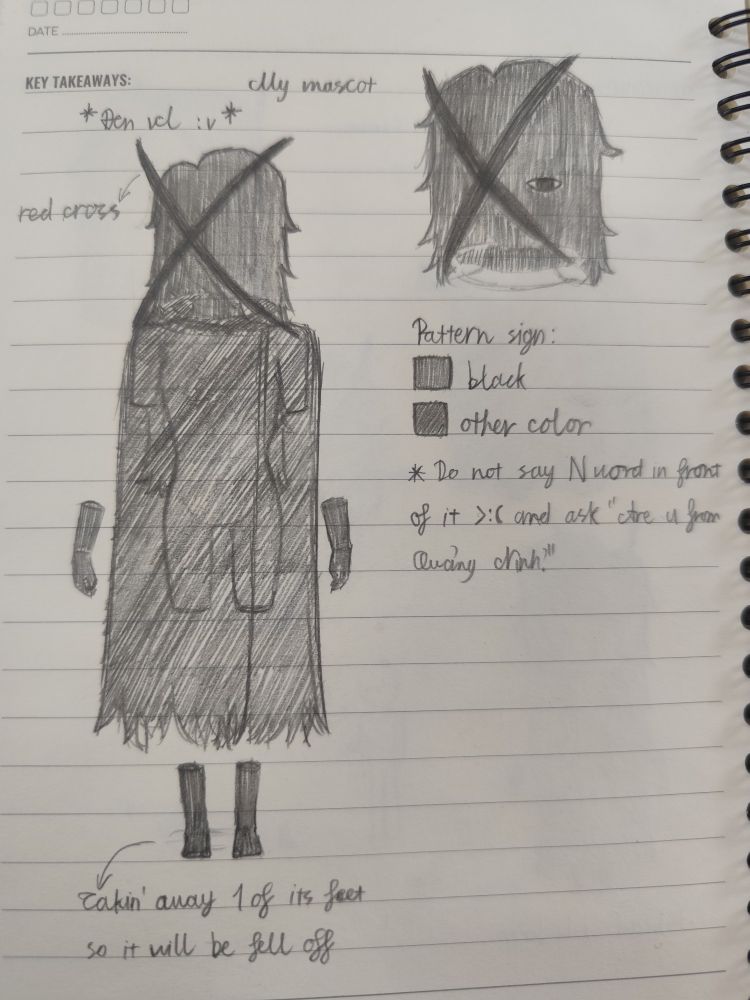 DATE
KEY TAKEAWAYS:
My mascot
*Đen vcl :v*
red cross
Pattern sign:
black
other color
* Do not say N word in front
of it >:( and ask "Are u from
Quảng Ninh?"
Takin' away 1 of its feet
so it will be fell off